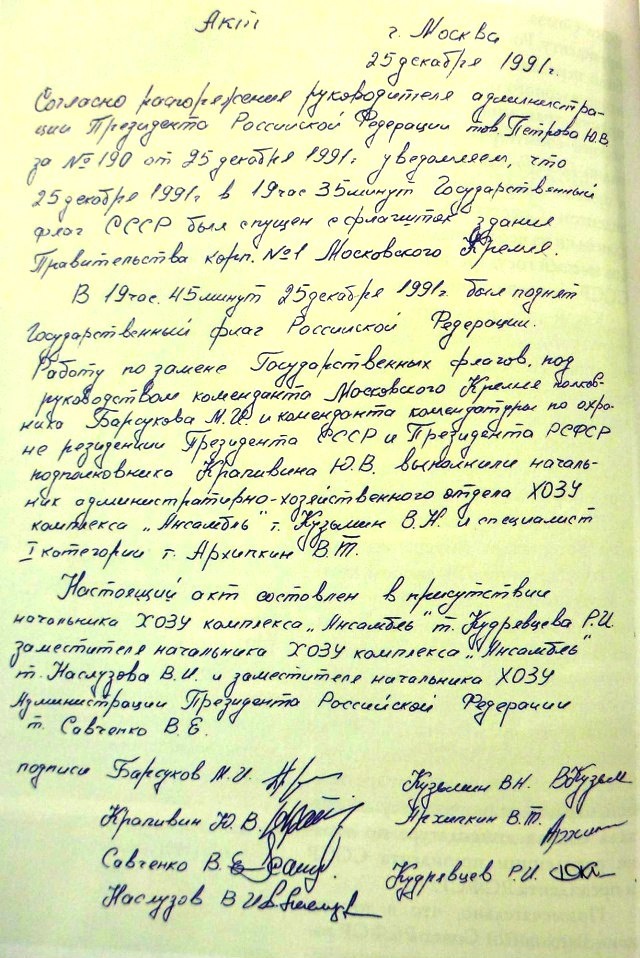 Акт
г. Москва
25 декабря 1991г.
Согласно распоряжения руководителя администра-
ции Президента Российской Федерации тов. Петрова Ю.В.
за №190 от 25 декабря 1991г. уведомляем, что
25 декабря 1991г. в 19 час 35 минут Государственный
флаг СССР был спущен с флагшток здания
Правительства корп. №1 Московского Кремля.
В 19 час. 45 минут 25 декабря 1991г. был поднят
Государственный флаг Российской Федерации.
Работу по замене Государственных флагов, под
руководством коменданта Московского Кремля полков-
ника Барсукова М.И. и коменданта комендатуры по охра-
не резиденции Президента СССР и Президента РСФСР
подполковника Крапивина Ю.В. выполнили началь-
ник административно-хозяйственного отдела ХОЗУ
комплекса „Ансамбль" т. Кузьмин В.Н. и специалист
I категории т. Архипкин В.Т.
Настоящий акт составлен в присутствии
начальника ХОЗУ комплекса „Ансамбль" т. Кудрявцева Р.И.
заместителя начальника ХОЗУ комплекса „Ансамбль"
т. Наслузова В.И. и заместителя начальника ХОЗУ
Администрации Президента Российской Федерации
т. Савченко В.Е.
подписи Барсуков М.И.
Кузьмин В.Н.
Крапивин Ю.В.
Архипкин В.Т.
Савченко В.Е.
Кудрявцев Р.И.
Наслузов В.И.